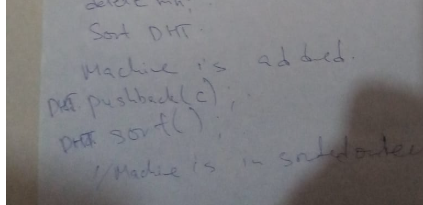 delete mn;
Sort DHT.
Machine is added.
DHT.pushback(c);
DHT sort();
//Machine is in sorted order